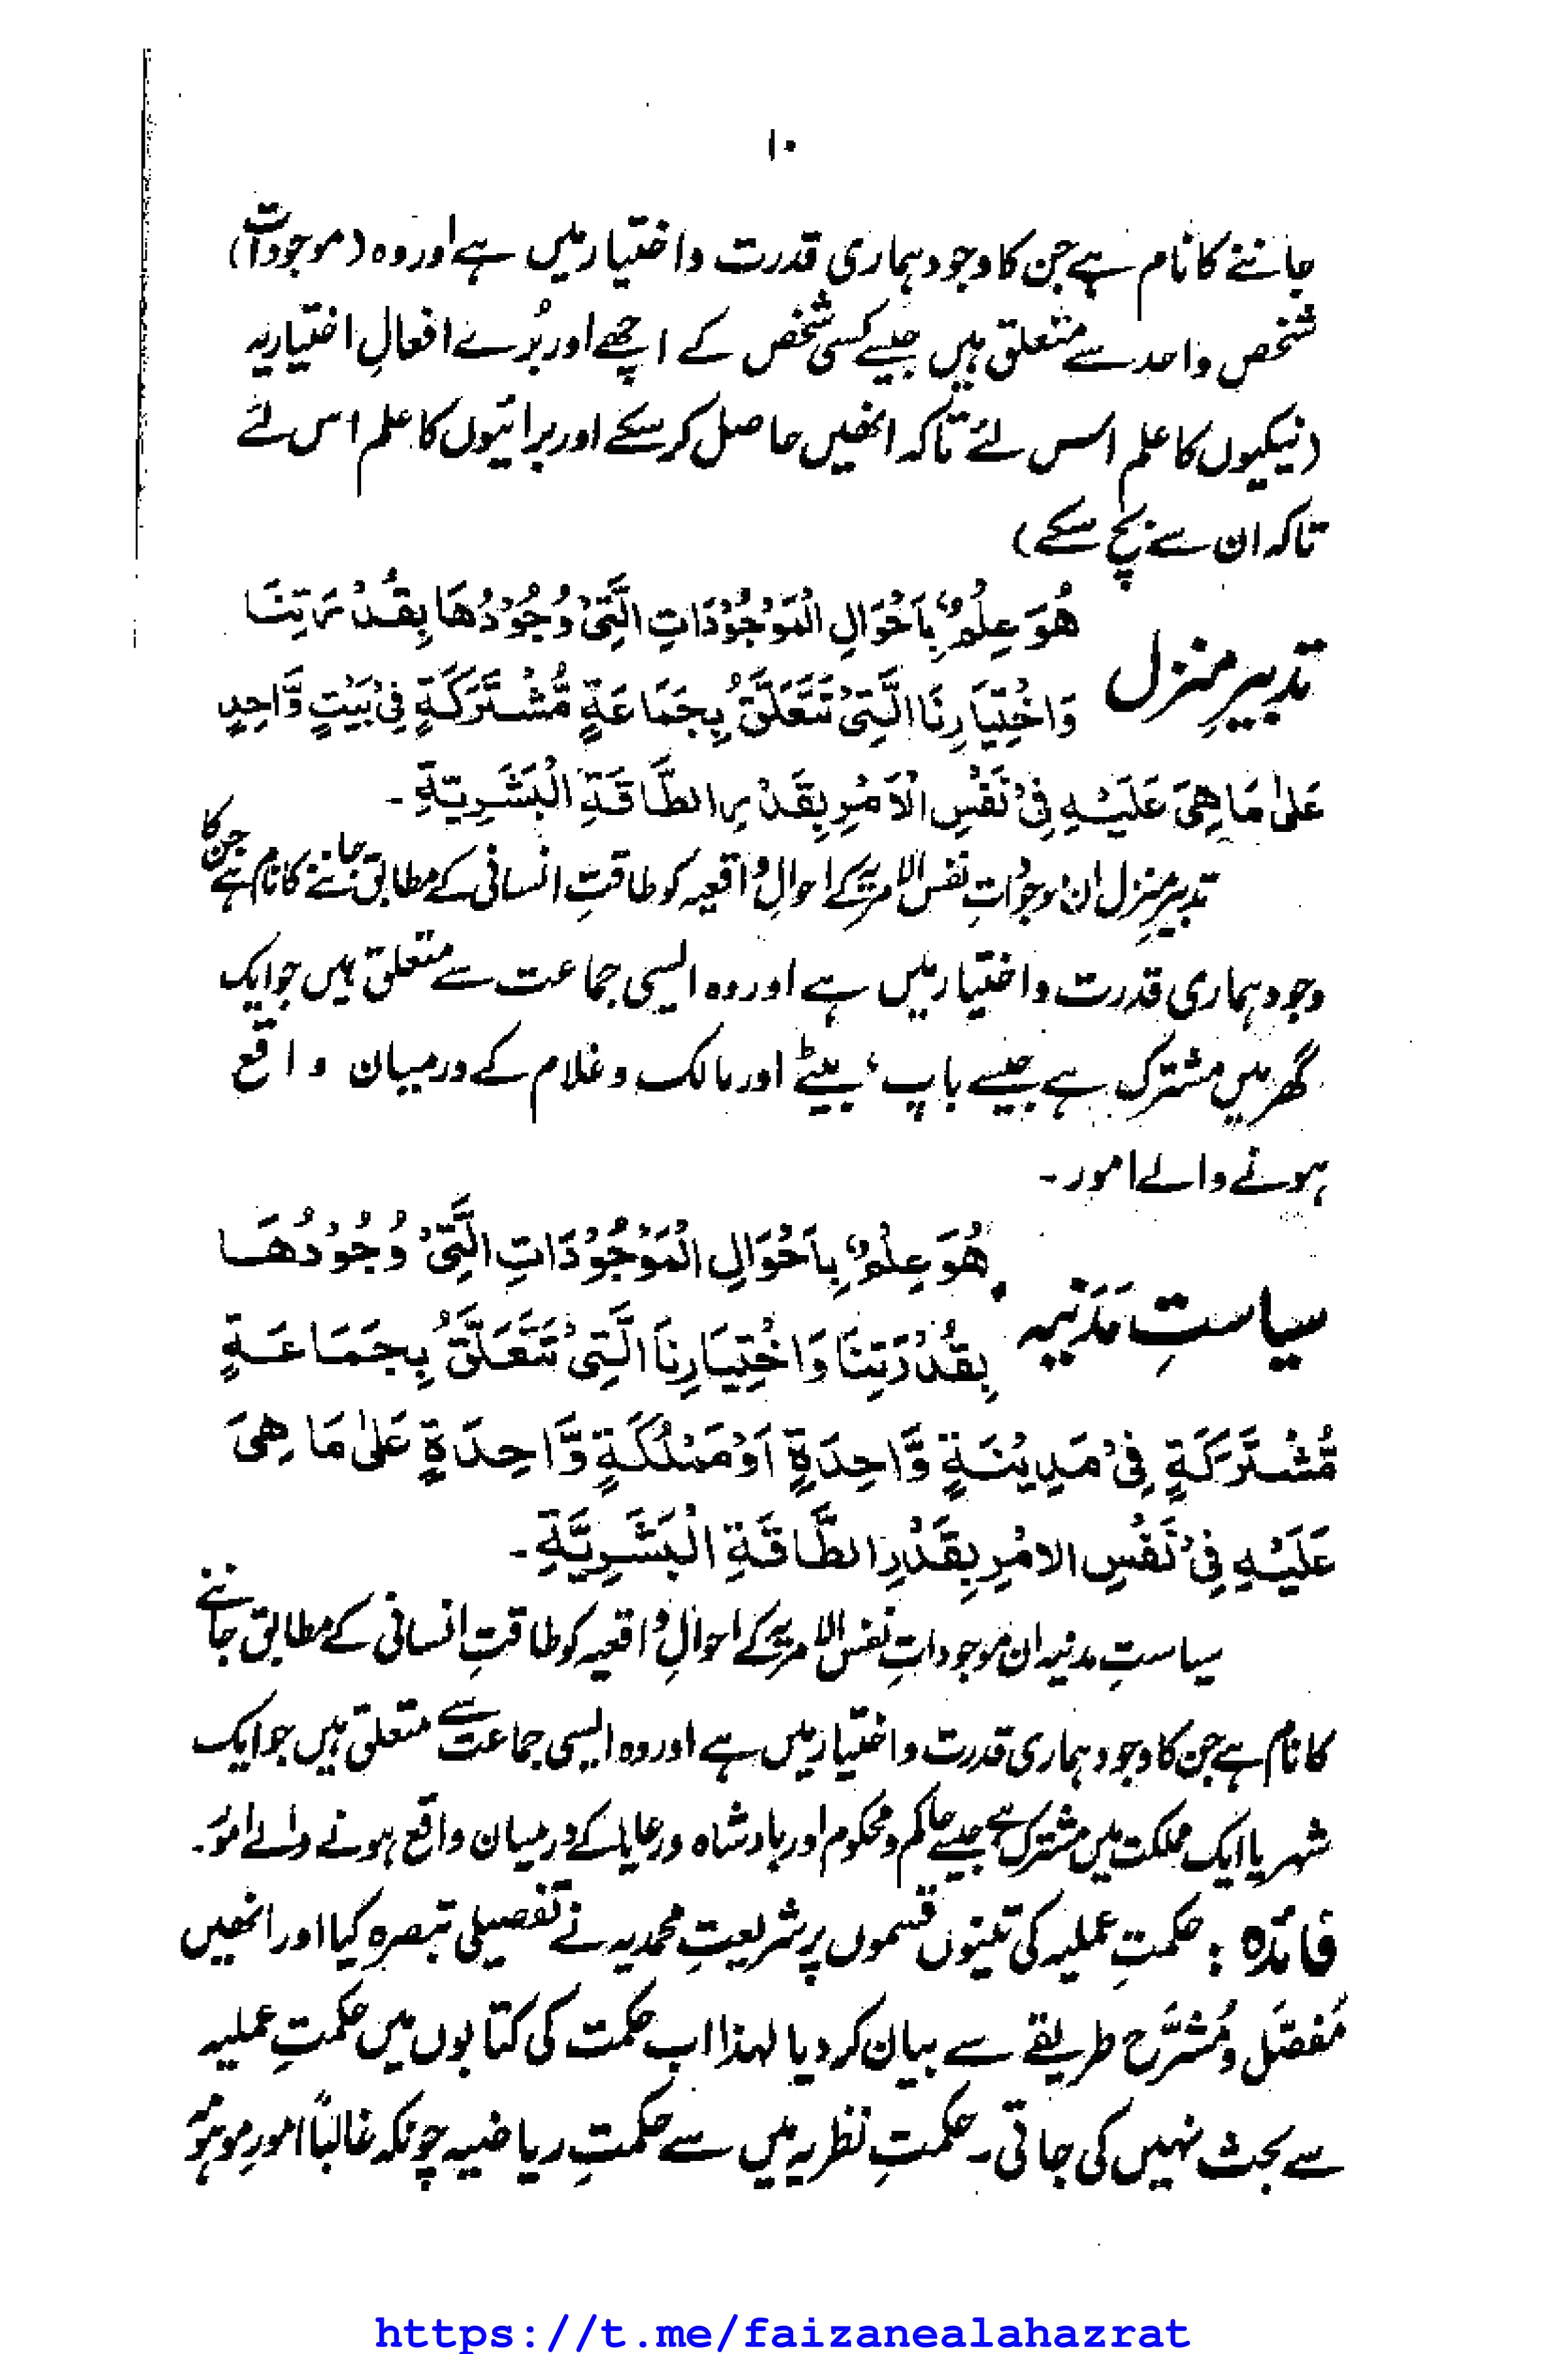 ۱۰
جاننے کا نام ہے جن کا وجود ہماری قدرت و اختیار میں ہے اور وہ (موجودات)
شخص واحد سے متعلق ہیں جیسے کسی شخص کے اچھے اور بُرے افعالِ اختیاریہ
(نیکیوں کا علم اس لئے تاکہ انھیں حاصل کر سکے اور برائیوں کا علم اس لئے
تاکہ ان سے بچ سکے)
تدبیرِ منزل
هُوَ عِلْمٌ بِاَحْوَالِ الْمَوْجُوْدَاتِ الَّتِیْ وُجُوْدُهَا بِقُدْرَتِنَا
وَاخْتِیَارِنَا الَّتِیْ تَتَعَلَّقُ بِجَمَاعَةٍ مُّشْتَرَكَةٍ فِیْ بَیْتٍ وَّاحِدٍ
عَلیٰ مَا هِیَ عَلَیْهِ فِیْ نَفْسِ الْاَمْرِ بِقَدْرِ الطَّاقَةِ الْبَشَرِیَّةِ ۔
تدبیرِ منزل ان موجوداتِ نفس الامریہ کے احوالِ واقعیہ کو طاقتِ انسانی کے مطابق جاننے کا نام ہے جن کا
وجود ہماری قدرت و اختیار میں ہے اور وہ ایسی جماعت سے متعلق ہیں جو ایک
گھر میں مشترک ہے جیسے باپ، بیٹے اور مالک و غلام کے درمیان واقع
ہونے والے امور ۔
سیاستِ مَدَنیہ
هُوَ عِلْمٌ بِاَحْوَالِ الْمَوْجُوْدَاتِ الَّتِیْ وُجُوْدُهَا
بِقُدْرَتِنَا وَاخْتِیَارِنَا الَّتِیْ تَتَعَلَّقُ بِجَمَاعَةٍ
مُّشْتَرَكَةٍ فِیْ مَدِیْنَةٍ وَّاحِدَةٍ اَوْ مَمْلُكَةٍ وَّاحِدَةٍ عَلیٰ مَا هِیَ
عَلَیْهِ فِیْ نَفْسِ الامْرِ بِقَدْرِ الطَّاقَةِ الْبَشَرِیَّةِ ۔
سیاستِ مدنیہ ان موجوداتِ نفس الامریہ کے احوالِ واقعیہ کو طاقتِ انسانی کے مطابق جاننے
کا نام ہے جن کا وجود ہماری قدرت و اختیار میں ہے اور وہ ایسی جماعت سے متعلق ہیں جو ایک
شہر یا ایک مملکت میں مشترک ہے جیسے حاکم و محکوم اور بادشاہ و رعایا کے درمیان واقع ہونے والے امور۔
فائدہ : حکمتِ عملیہ کی تینوں قسموں پر شریعتِ محمدیہ نے تفصیلی تبصرہ کیا اور انھیں
مُفصَّل و مُشرَّح طریقے سے بیان کر دیا لہذا اب حکمت کی کتابوں میں حکمتِ عملیہ
سے بحث نہیں کی جاتی۔ حکمتِ نظریہ میں سے حکمتِ ریاضیہ چونکہ غالباً امورِ موہومہ
https://t.me/faizanealahazrat